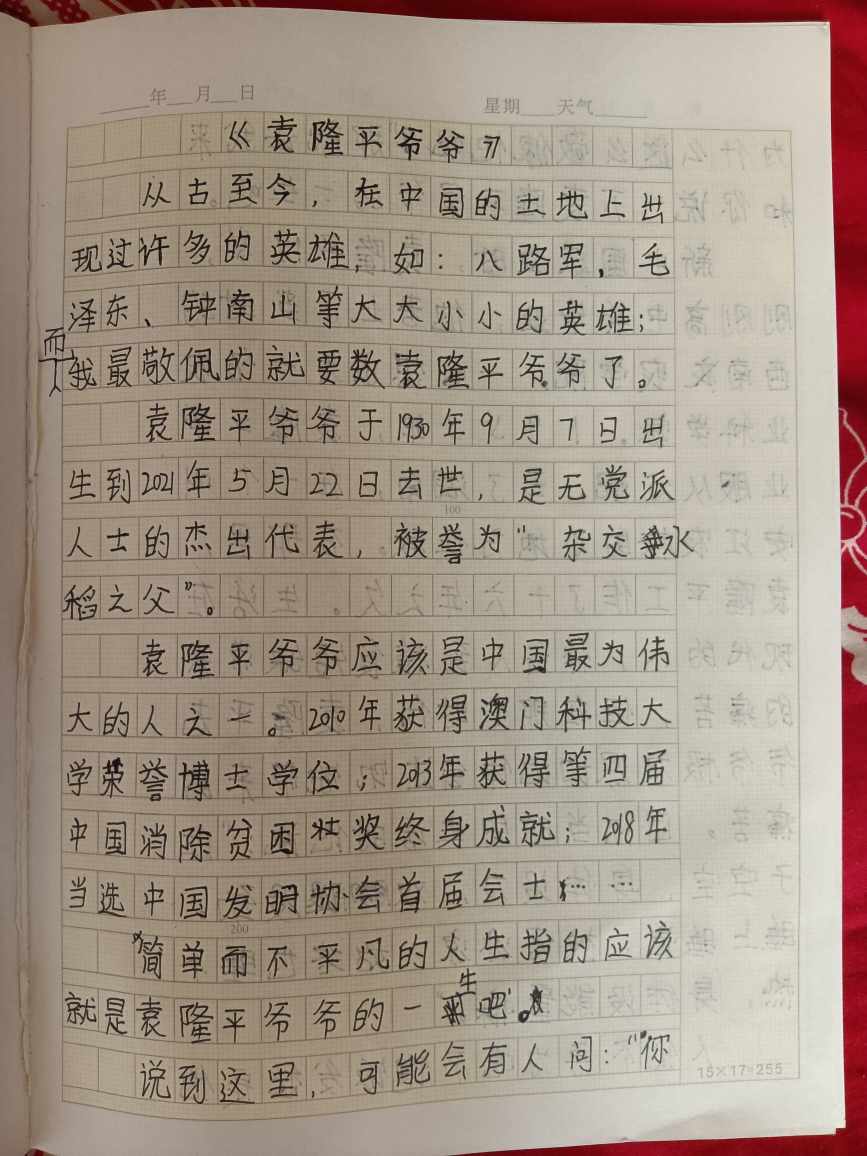 年 月 日 星期 天气
《袁隆平爷爷》
从古至今，在中国的土地上出
现过许多的英雄，如：八路军，毛
泽东、钟南山等大大小小的英雄；
而我最敬佩的就要数袁隆平爷爷了。
袁隆平爷爷于1930年9月7日出
生到2021年5月22日去世，是无党派
人士的杰出代表，被誉为“杂交水
稻之父”。
100
袁隆平爷爷应该是中国最为伟
大的人之一。2010年获得澳门科技大
学荣誉博士学位；2013年获得第四届
中国消除贫困奖终身成就；2018年
当选中国发明协会首届会士；……
200
简单而不平凡的人生指的应该
就是袁隆平爷爷的一生吧。
说到这里，可能会有人问：“你
15×17=255